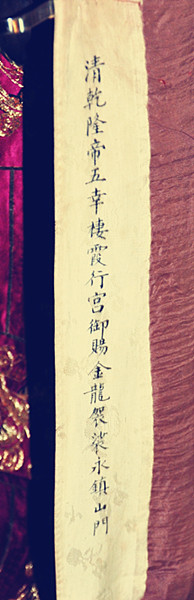 清乾隆帝五幸棲霞行宮御賜金龍袈裟永鎮山門